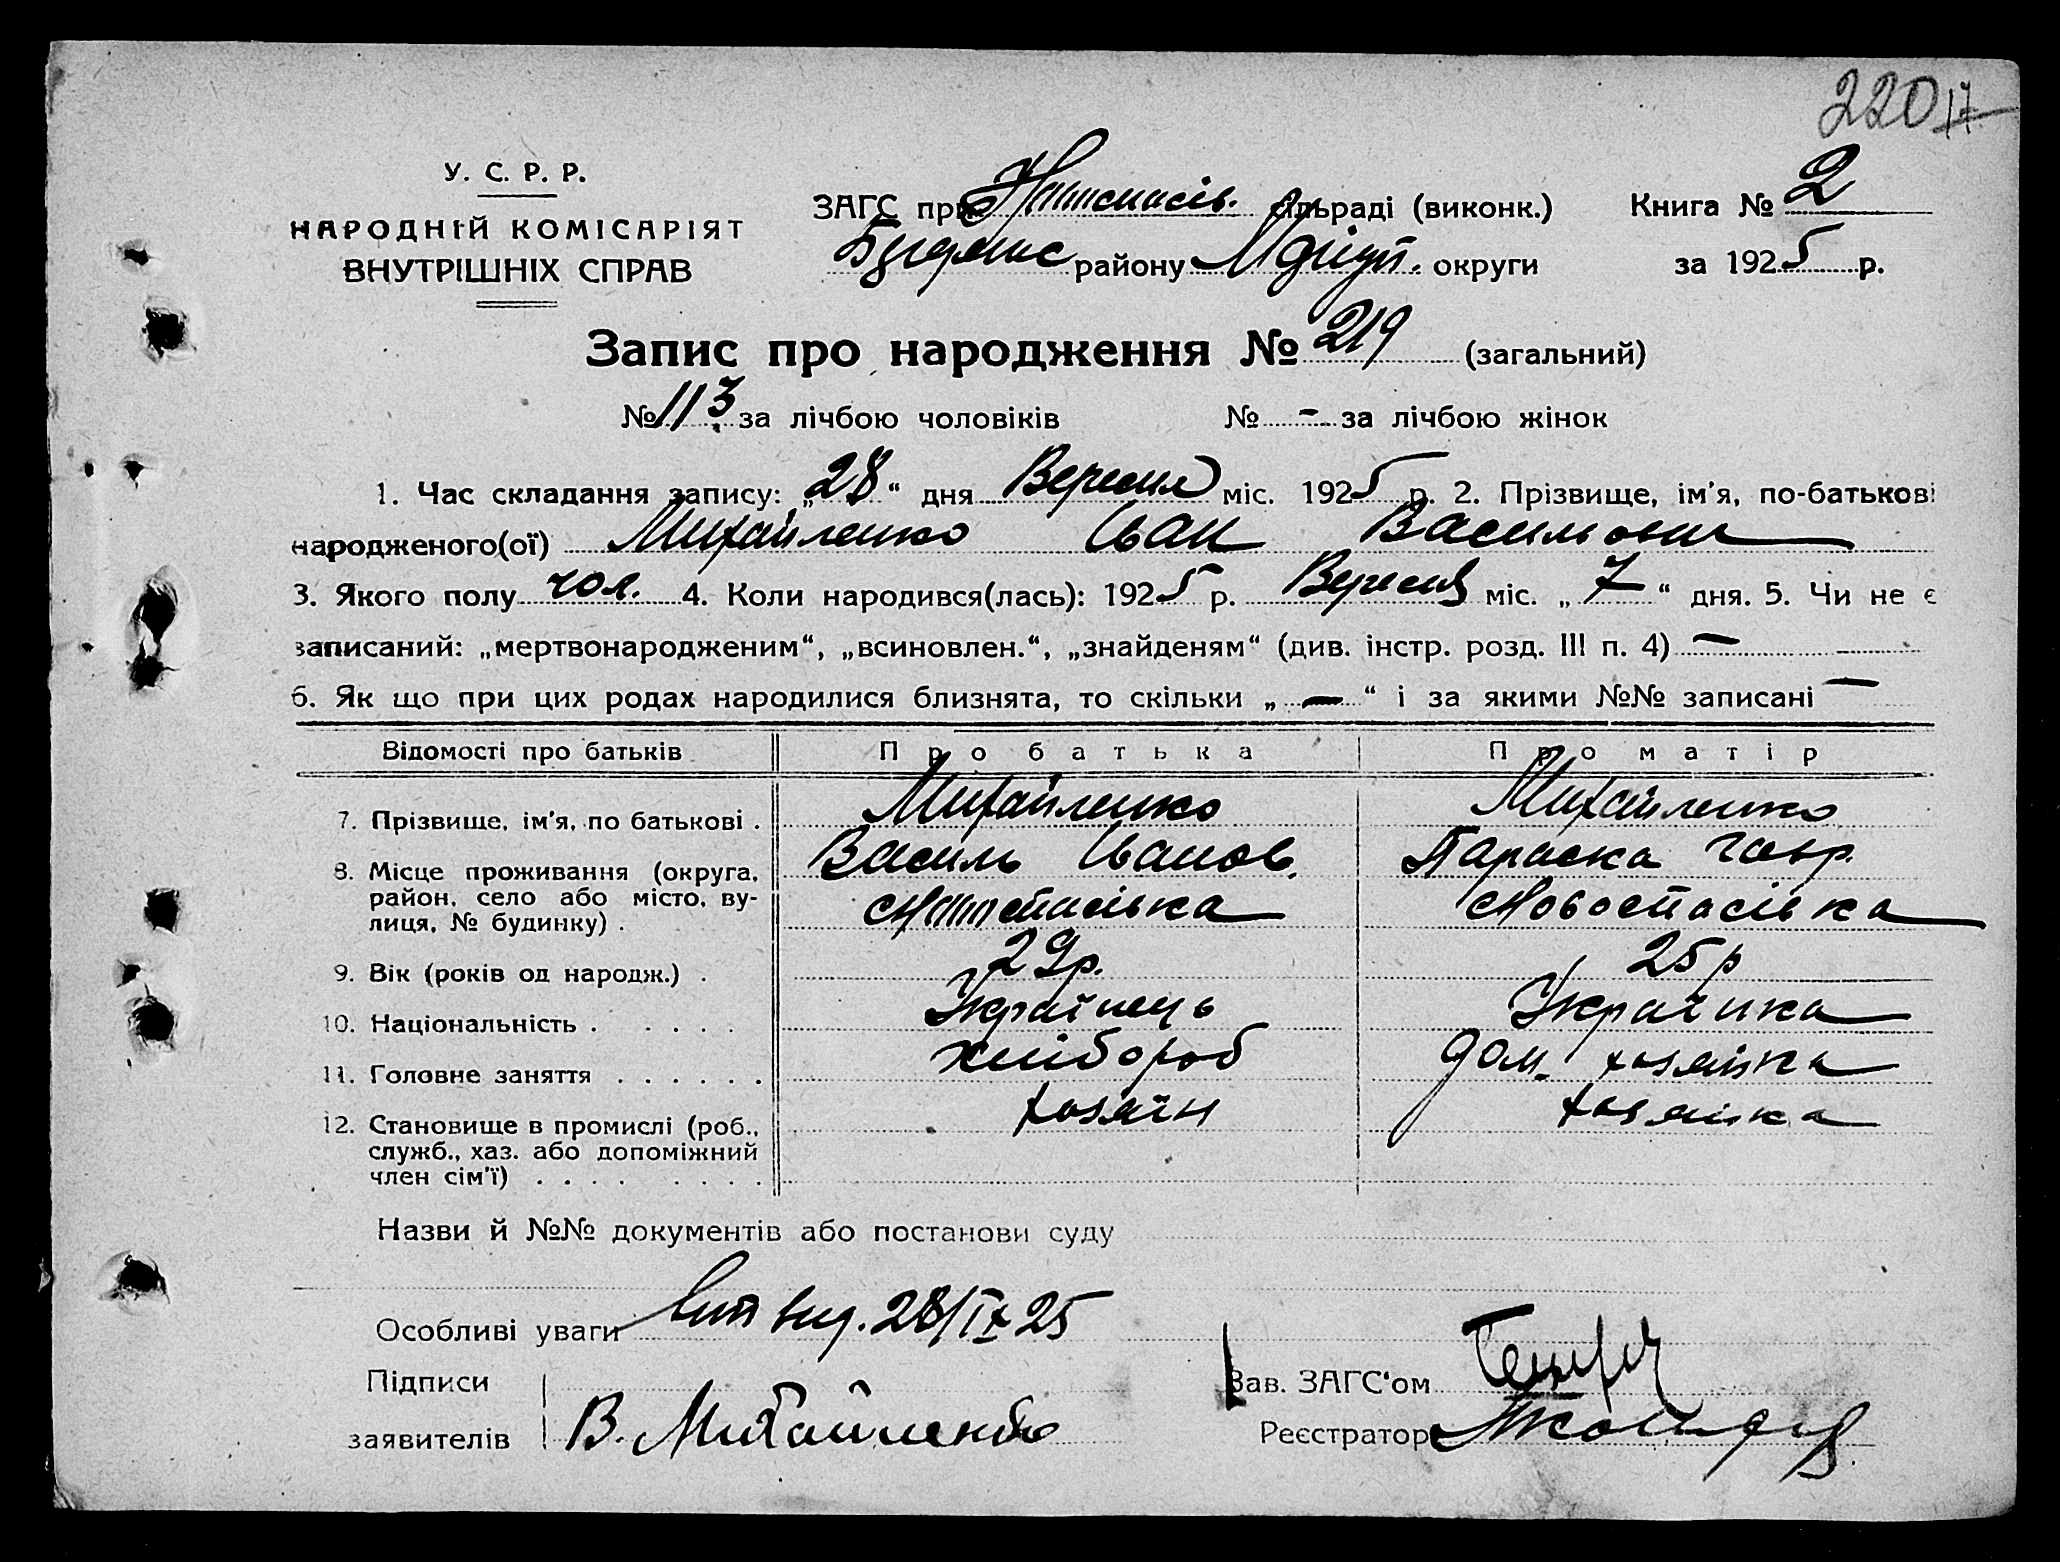 220 17
У. С. Р. Р.
НАРОДНІЙ КОМІСАРІЯТ
ВНУТРІШНІХ СПРАВ
ЗАГС при сільраді (виконк.) Книга № 2
району округи за 1925 р.
Запис про народження № 219 (загальний)
№ 113 за лічбою чоловіків № - за лічбою жінок
1. Час складання запису: „28“ дня Вересня міс. 1925 р. 2. Прізвище, ім'я, по-батькові
народженого(ої) Михайленко Іван Васильович
3. Якого полу чол. 4. Коли народився(лась): 1925 р. Вересня міс. „7“ дня. 5. Чи не є
записаний: „мертвонародженим“, „всиновлен.“, „знайденям“ (див. інстр. розд. III п. 4) —
6. Як що при цих родах народилися близнята, то скільки „—“ і за якими №№ записані —
Відомості про батьків Про батька Про матір
7. Прізвище, ім'я, по батькові . Михайленко Михайленко
Василь Іванов. Параска Гавр.
8. Місце проживання (округа, район, село або місто, вулиця, № будинку) . Новоспасівка
9. Вік (років од народж.) . 29 р. 25 р
10. Національність . . . . . Українець Українка
11. Головне заняття . . . . . . хлібороб дом. хозяйка
12. Становище в промислі (роб., служб., хаз. або допоміжний член сім'ї) . . . . . . . . хозяїн хозяйка
Назви й №№ документів або постанови суду
Особливі уваги вит вид. 28/IX 25
Підписи Зав. ЗАГС'ом
заявителів В. Михайленко Реєстратор